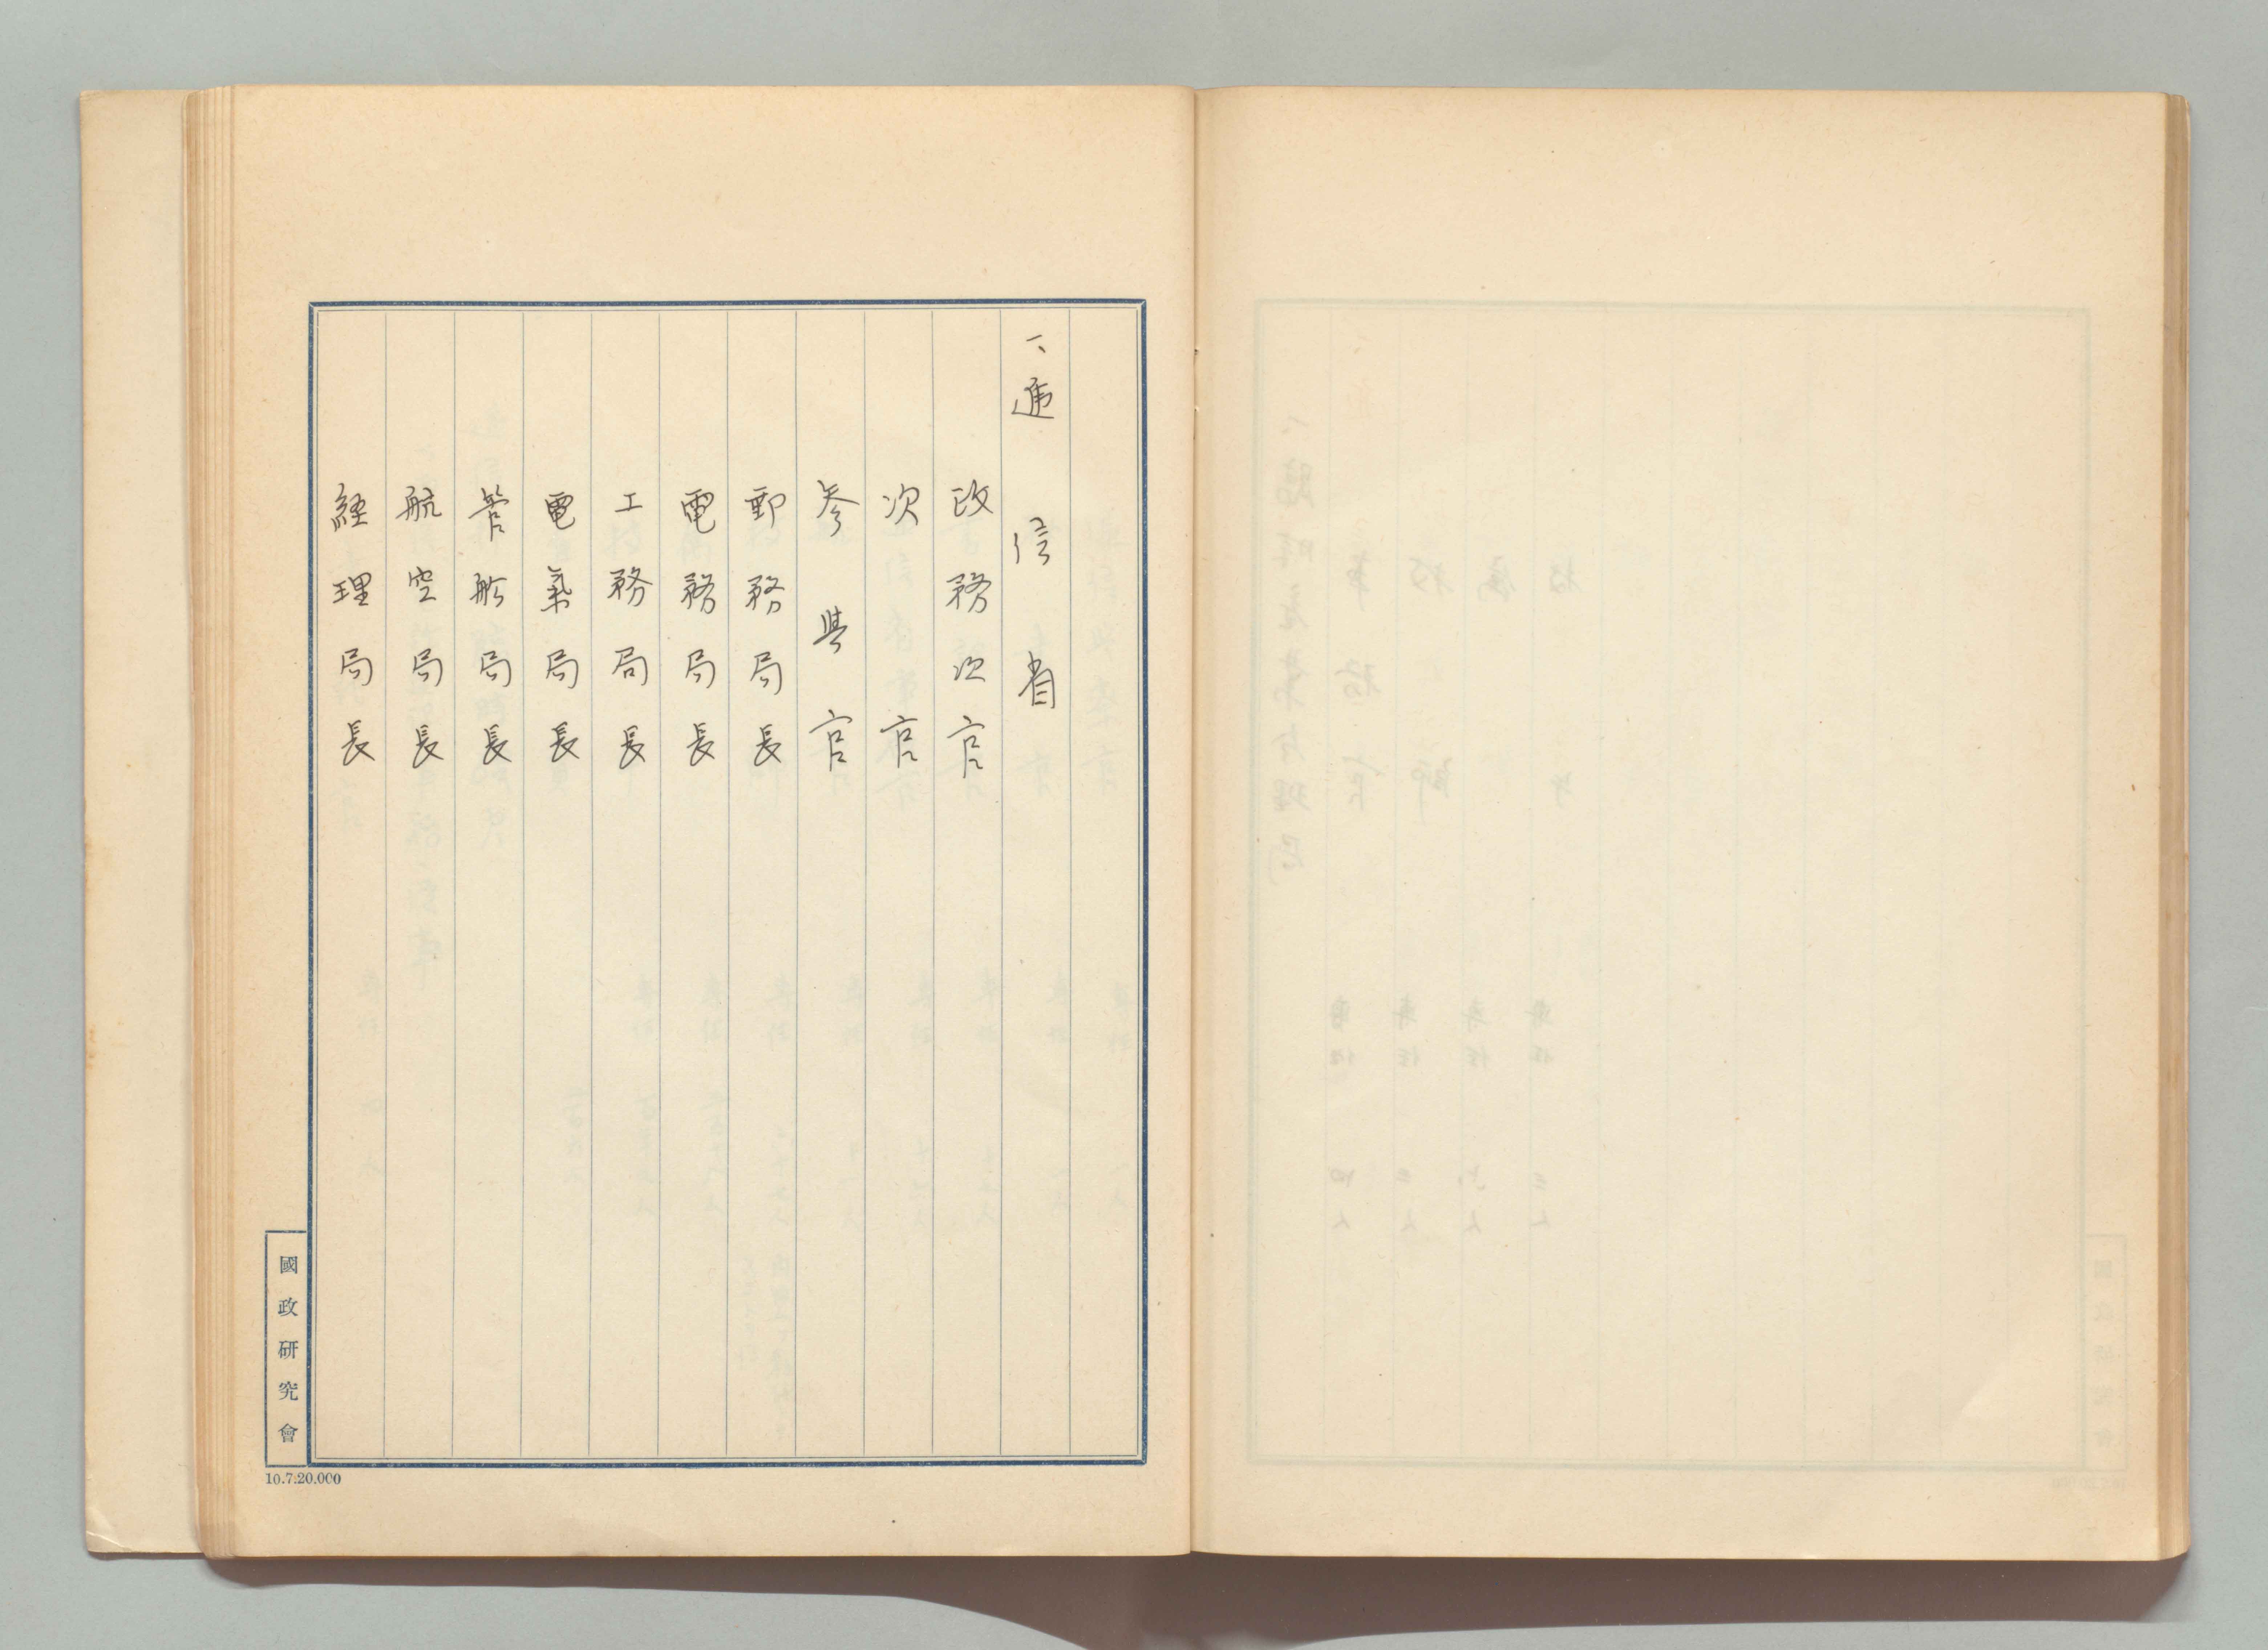 一、遞信省
政務次官
次官
参与官
郵務局長
電務局長
工務局長
電氣局長
管船局長
航空局長
経理局長
國政研究會
10.7.20.000